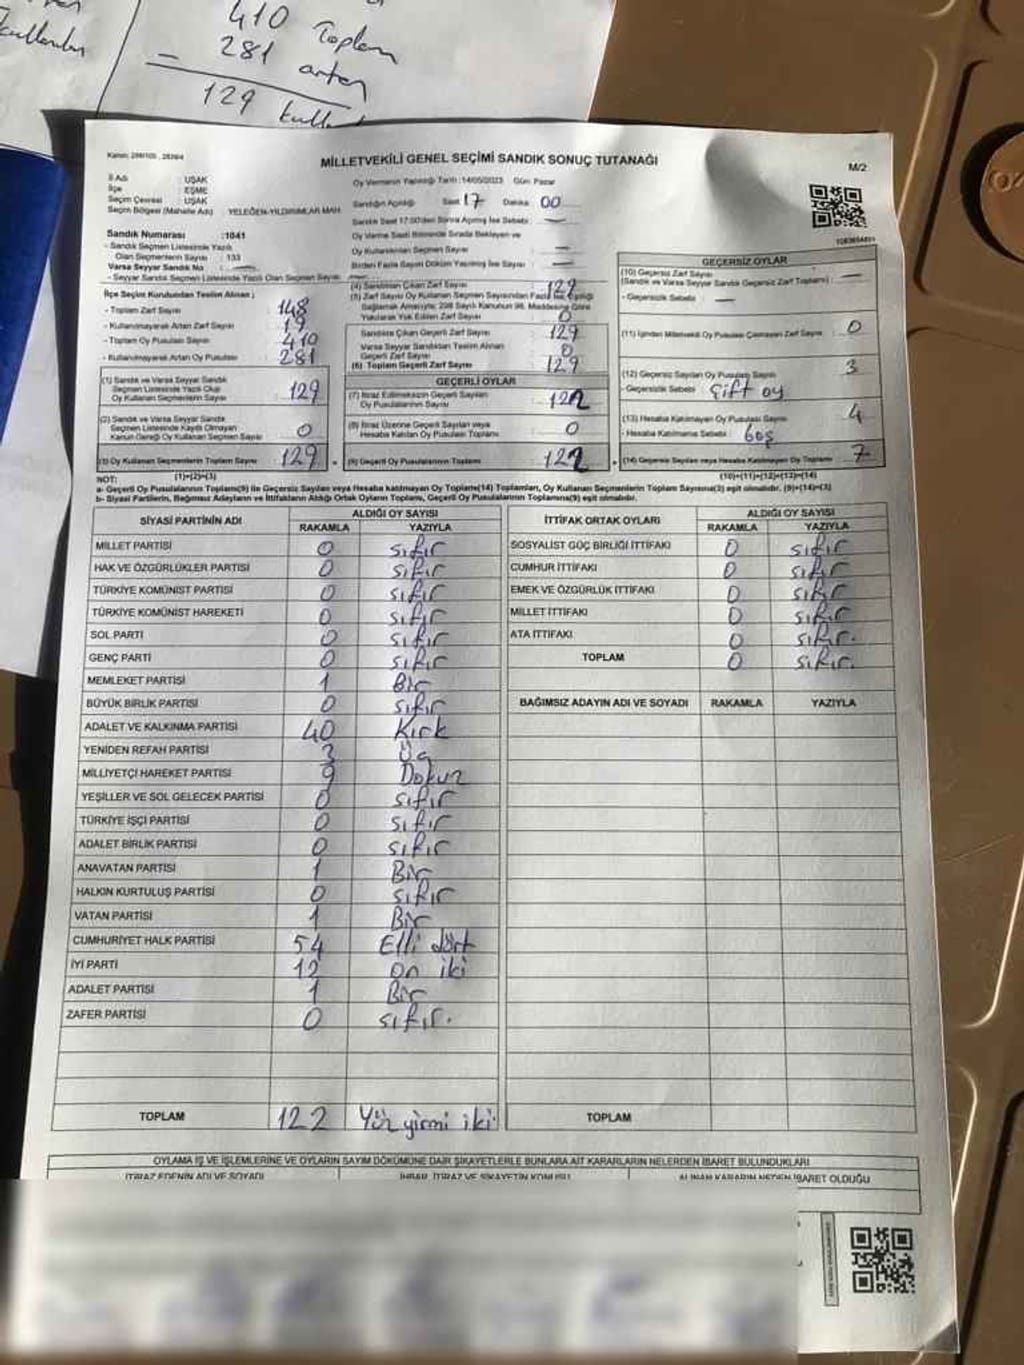 410 Toplam
kullanılan
- 281 artan
129 kull
Kanun: 298/105 , 2839/4
MİLLETVEKİLİ GENEL SEÇİMİ SANDIK SONUÇ TUTANAĞI
M/2
İl Adı : UŞAK
İlçe : EŞME
Seçim Çevresi : UŞAK
Seçim Bölgesi (Mahalle Adı) YELEĞEN-YILDIRIMLAR MAH.
Oy Vermenin Yapıldığı Tarih :14/05/2023 Gün: Pazar
Sandığın Açıldığı Saat 17 Dakika 00
Sandık Saat 17:00'den Sonra Açılmış İse Sebebi : —
Sandık Numarası :1041
- Sandık Seçmen Listesinde Yazılı
Olan Seçmenlerin Sayısı : 133
Varsa Seyyar Sandık No : —
- Seyyar Sandık Seçmen Listesinde Yazılı Olan Seçmen Sayısı —
Oy Verme Saati Bitiminde Sırada Bekleyen ve
Oy Kullananların Seçmen Sayısı : —
Birden Fazla Sayım Döküm Yapılmış İse Sayısı : —
İlçe Seçim Kurulundan Teslim Alınan ;
- Toplam Zarf Sayısı : 148
- Kullanılmayarak Artan Zarf Sayısı : 19
- Toplam Oy Pusulası Sayısı : 410
- Kullanılmayarak Artan Oy Pusulası : 281
(1) Sandık ve Varsa Seyyar Sandık
Seçmen Listesinde Yazılı Olup
Oy Kullanan Seçmenlerin Sayısı 129
(2) Sandık ve Varsa Seyyar Sandık
Seçmen Listesinde Kayıtlı Olmayan
Kanun Gereği Oy Kullanan Seçmen Sayısı 0
(3) Oy Kullanan Seçmenlerin Toplam Sayısı 129
(1)+(2)=(3)
(4) Sandıktan Çıkan Zarf Sayısı : 129
(5) Zarf Sayısı Oy Kullanan Seçmen Sayısından Fazla ise, Eşitliği
Sağlamak Amacıyla; 298 Sayılı Kanunun 98. Maddesine Göre
Yakılarak Yok Edilen Zarf Sayısı : 0
Sandıkta Çıkan Geçerli Zarf Sayısı : 129
Varsa Seyyar Sandıktan Teslim Alınan
Geçerli Zarf Sayısı : 0
(6) Toplam Geçerli Zarf Sayısı : 129
GEÇERLİ OYLAR
(7) İtiraz Edilmeksizin Geçerli Sayılan
Oy Pusulalarının Sayısı : 122
(8) İtiraz Üzerine Geçerli Sayılan veya
Hesaba Katılan Oy Pusulası Toplamı : 0
(9) Geçerli Oy Pusulalarının Toplamı : 122
GEÇERSİZ OYLAR
(10) Geçersiz Zarf Sayısı
(Sandık ve Varsa Seyyar Sandık Geçersiz Zarf Toplamı) : —
- Geçersizlik Sebebi : —
(11) İçinden Milletvekili Oy Pusulası Çıkmayan Zarf Sayısı : 0
(12) Geçersiz Sayılan Oy Pusulası Sayısı : 3
- Geçersizlik Sebebi : Çift oy
(13) Hesaba Katılmayan Oy Pusulası Sayısı : 4
- Hesaba Katılmama Sebebi : boş
(14) Geçersiz Sayılan veya Hesaba Katılmayan Oy Toplamı : 7
(10)+(11)+(12)+(13)=(14)
NOT:
a- Geçerli Oy Pusulalarının Toplamı(9) ile Geçersiz Sayılan veya Hesaba katılmayan Oy Toplamı(14) Toplamları, Oy Kullanan Seçmenlerin Toplam Sayısına(3) eşit olmalıdır. (9)+(14)=(3)
b- Siyasi Partilerin, Bağımsız Adayların ve İttifakların Aldığı Ortak Oyların Toplamı, Geçerli Oy Pusulalarının Toplamına(9) eşit olmalıdır.
SİYASİ PARTİNİN ADI ALDIĞI OY SAYISI
RAKAMLA YAZIYLA
MİLLET PARTİSİ 0 sıfır
HAK VE ÖZGÜRLÜKLER PARTİSİ 0 sıfır
TÜRKİYE KOMÜNİST PARTİSİ 0 sıfır
TÜRKİYE KOMÜNİST HAREKETİ 0 sıfır
SOL PARTİ 0 sıfır
GENÇ PARTİ 0 sıfır
MEMLEKET PARTİSİ 1 Bir
BÜYÜK BİRLİK PARTİSİ 0 sıfır
ADALET VE KALKINMA PARTİSİ 40 Kırk
YENİDEN REFAH PARTİSİ 3 Üç
MİLLİYETÇİ HAREKET PARTİSİ 9 Dokuz
YEŞİLLER VE SOL GELECEK PARTİSİ 0 sıfır
TÜRKİYE İŞÇİ PARTİSİ 0 sıfır
ADALET BİRLİK PARTİSİ 0 sıfır
ANAVATAN PARTİSİ 1 Bir
HALKIN KURTULUŞ PARTİSİ 0 sıfır
VATAN PARTİSİ 1 Bir
CUMHURİYET HALK PARTİSİ 54 Elli dört
İYİ PARTİ 12 on iki
ADALET PARTİSİ 1 Bir
ZAFER PARTİSİ 0 sıfır.
TOPLAM 122 Yüz yirmi iki
İTTİFAK ORTAK OYLARI ALDIĞI OY SAYISI
RAKAMLA YAZIYLA
SOSYALİST GÜÇ BİRLİĞİ İTTİFAKI 0 sıfır
CUMHUR İTTİFAKI 0 sıfır
EMEK VE ÖZGÜRLÜK İTTİFAKI 0 sıfır
MİLLET İTTİFAKI 0 sıfır
ATA İTTİFAKI 0 sıfır.
TOPLAM 0 sıfır.
BAĞIMSIZ ADAYIN ADI VE SOYADI RAKAMLA YAZIYLA
TOPLAM
OYLAMA İŞ VE İŞLEMLERİNE VE OYLARIN SAYIM DÖKÜMÜNE DAİR ŞİKAYETLERLE BUNLARA AİT KARARLARIN NELERDEN İBARET BULUNDUKLARI
İTİRAZ EDENİN ADI VE SOYADI İHBAR, İTİRAZ VE ŞİKAYETİN KONUSU ALINAN KARARIN NEDEN İBARET OLDUĞU